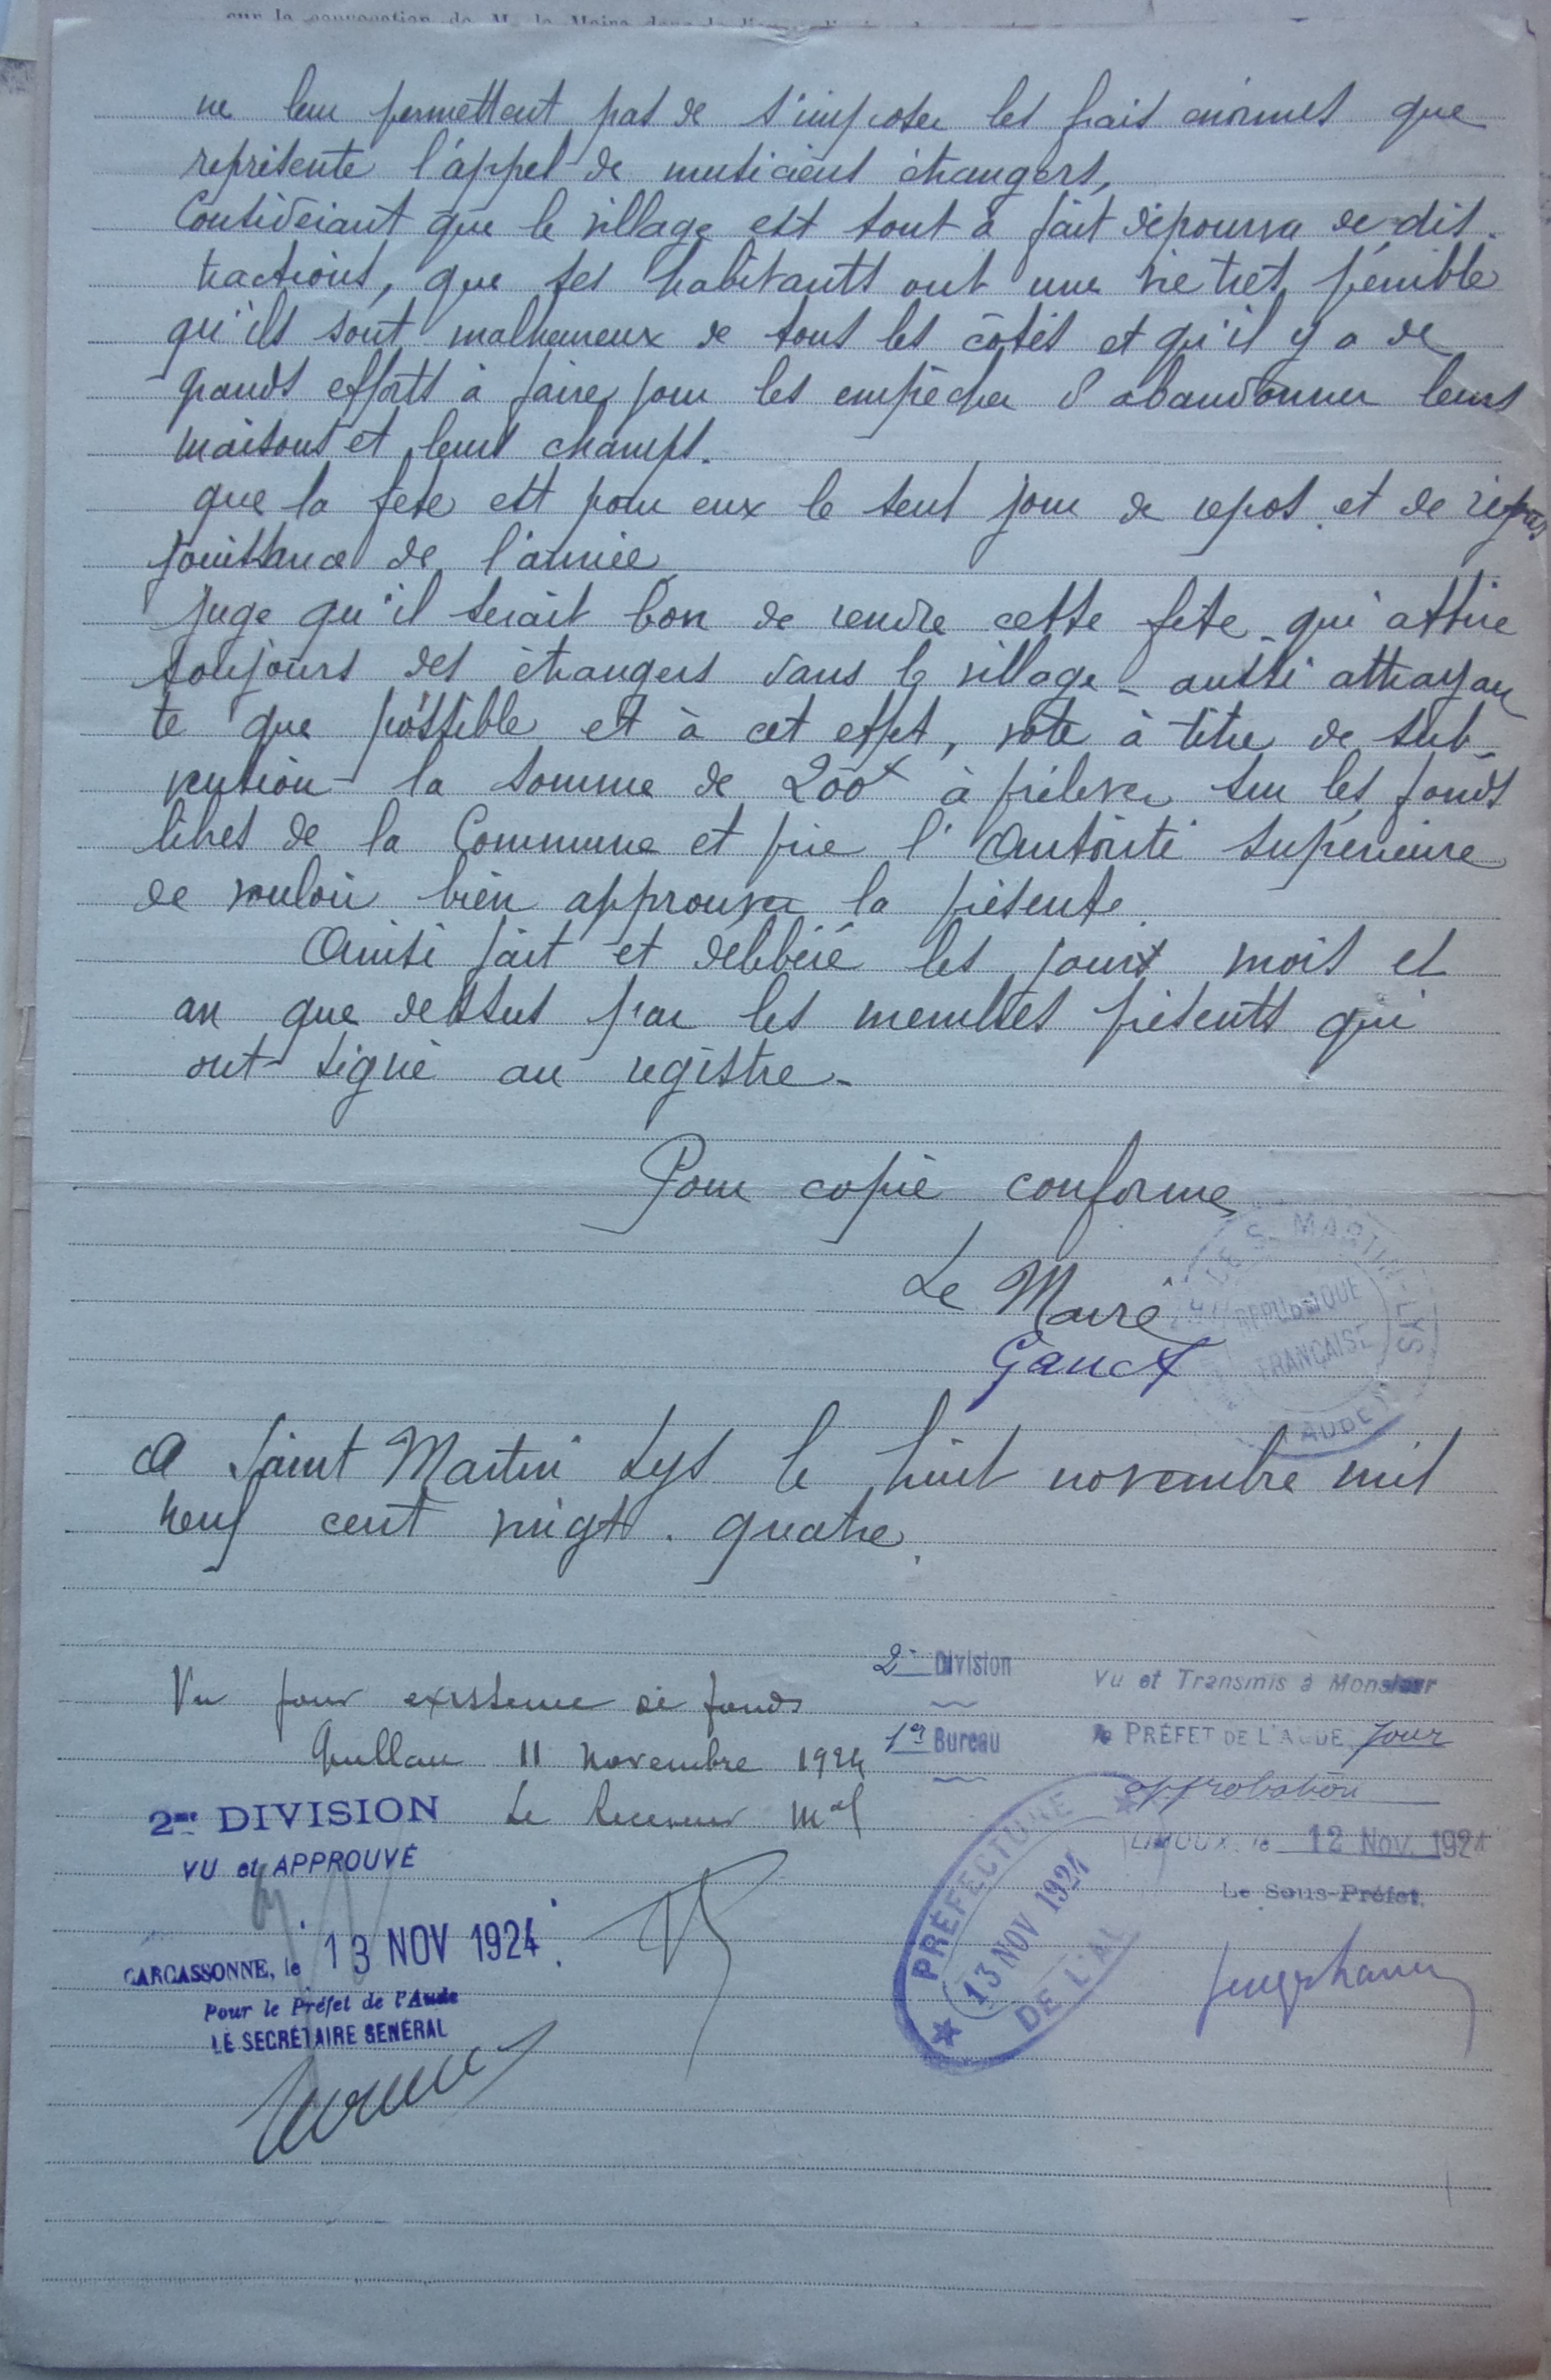 sur la convocation de M. le Maire dans le
ne leur permettent pas de s'imposer les frais énormes que
représente l'appel de musiciens étrangers,
Considérant que le village est tout à fait dépourvu de dis-
tractions, que ses habitants ont une vie très pénible
qu'ils sont malheureux de tous les côtés et qu'il y a de
grands efforts à faire pour les empêcher d'abandonner leurs
maisons et leurs champs.
que la fete est pour eux le seul jour de repos et de
jouissance de l'année
juge qu'il serait bon de rendre cette fete - qui attire
toujours des étrangers dans le village - aussi attrayan
te que possible et à cet effet, vote à titre de sub-
vention la somme de 200f à prélever sur les fonds
libres de la Commune et prie l'Autorité Supérieure
de vouloir bien approuver la présente.
Ainsi fait et délibéré les jours mois et
an que dessus par les membres présents qui
ont signé au registre.
Pour copie conforme
Le Maire
LE S^T MARTIN-LYS
RÉPUBLIQUE
FRANÇAISE
(AUDE)
A Saint Martin Lys le huit novembre mil
neuf cent vingt. quatre.
2e Division
Vu et Transmis à Monsieur
Vu pour existence de fonds
1er Bureau
le PRÉFET DE L'AUDE, pour
Quillan 11 novembre 1924
approbation
2me DIVISION
Le Receveur Mal
LIMOUX, le 12 Nov. 1924
VU et APPROUVÉ
Le Sous-Préfet,
PRÉFECTURE
13 NOV 1924
DE L'AU
CARCASSONNE, le 13 NOV 1924
Pour le Préfet de l'Aude
LE SECRÉTAIRE GÉNÉRAL